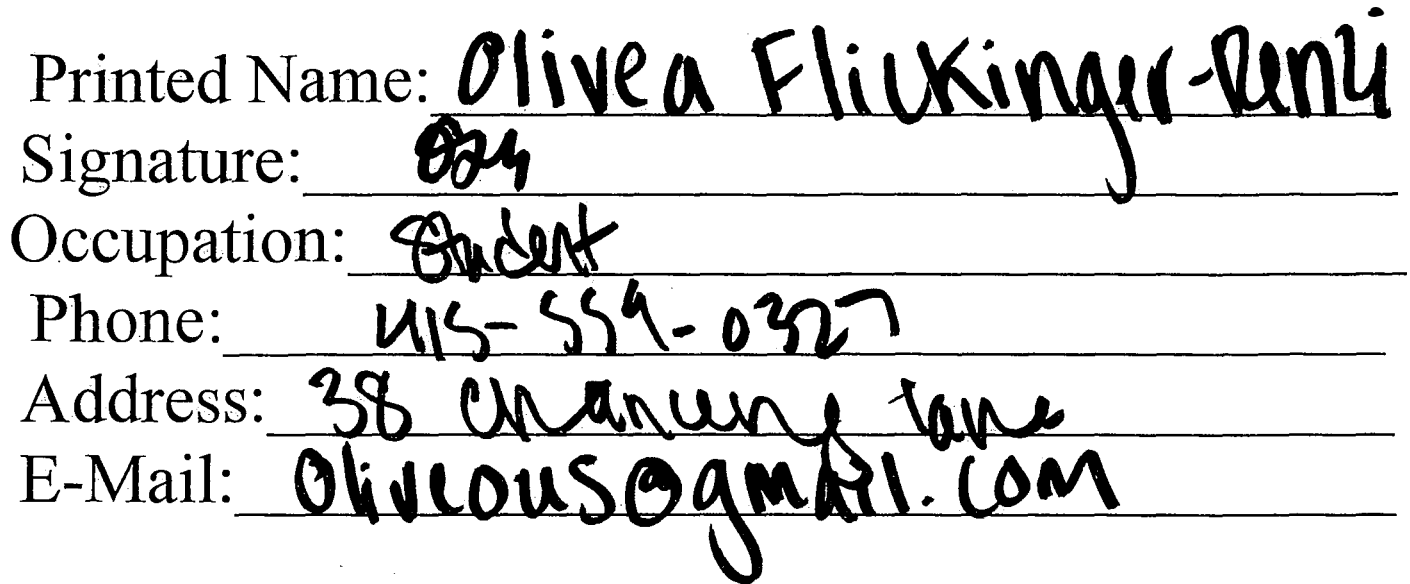 Printed Name: Olivea Flickinger-Renzi
Signature:
Occupation: Student
Phone: 415-559-0327
Address: 38 Chancery Lane
E-Mail: Oliveous@gmail.com